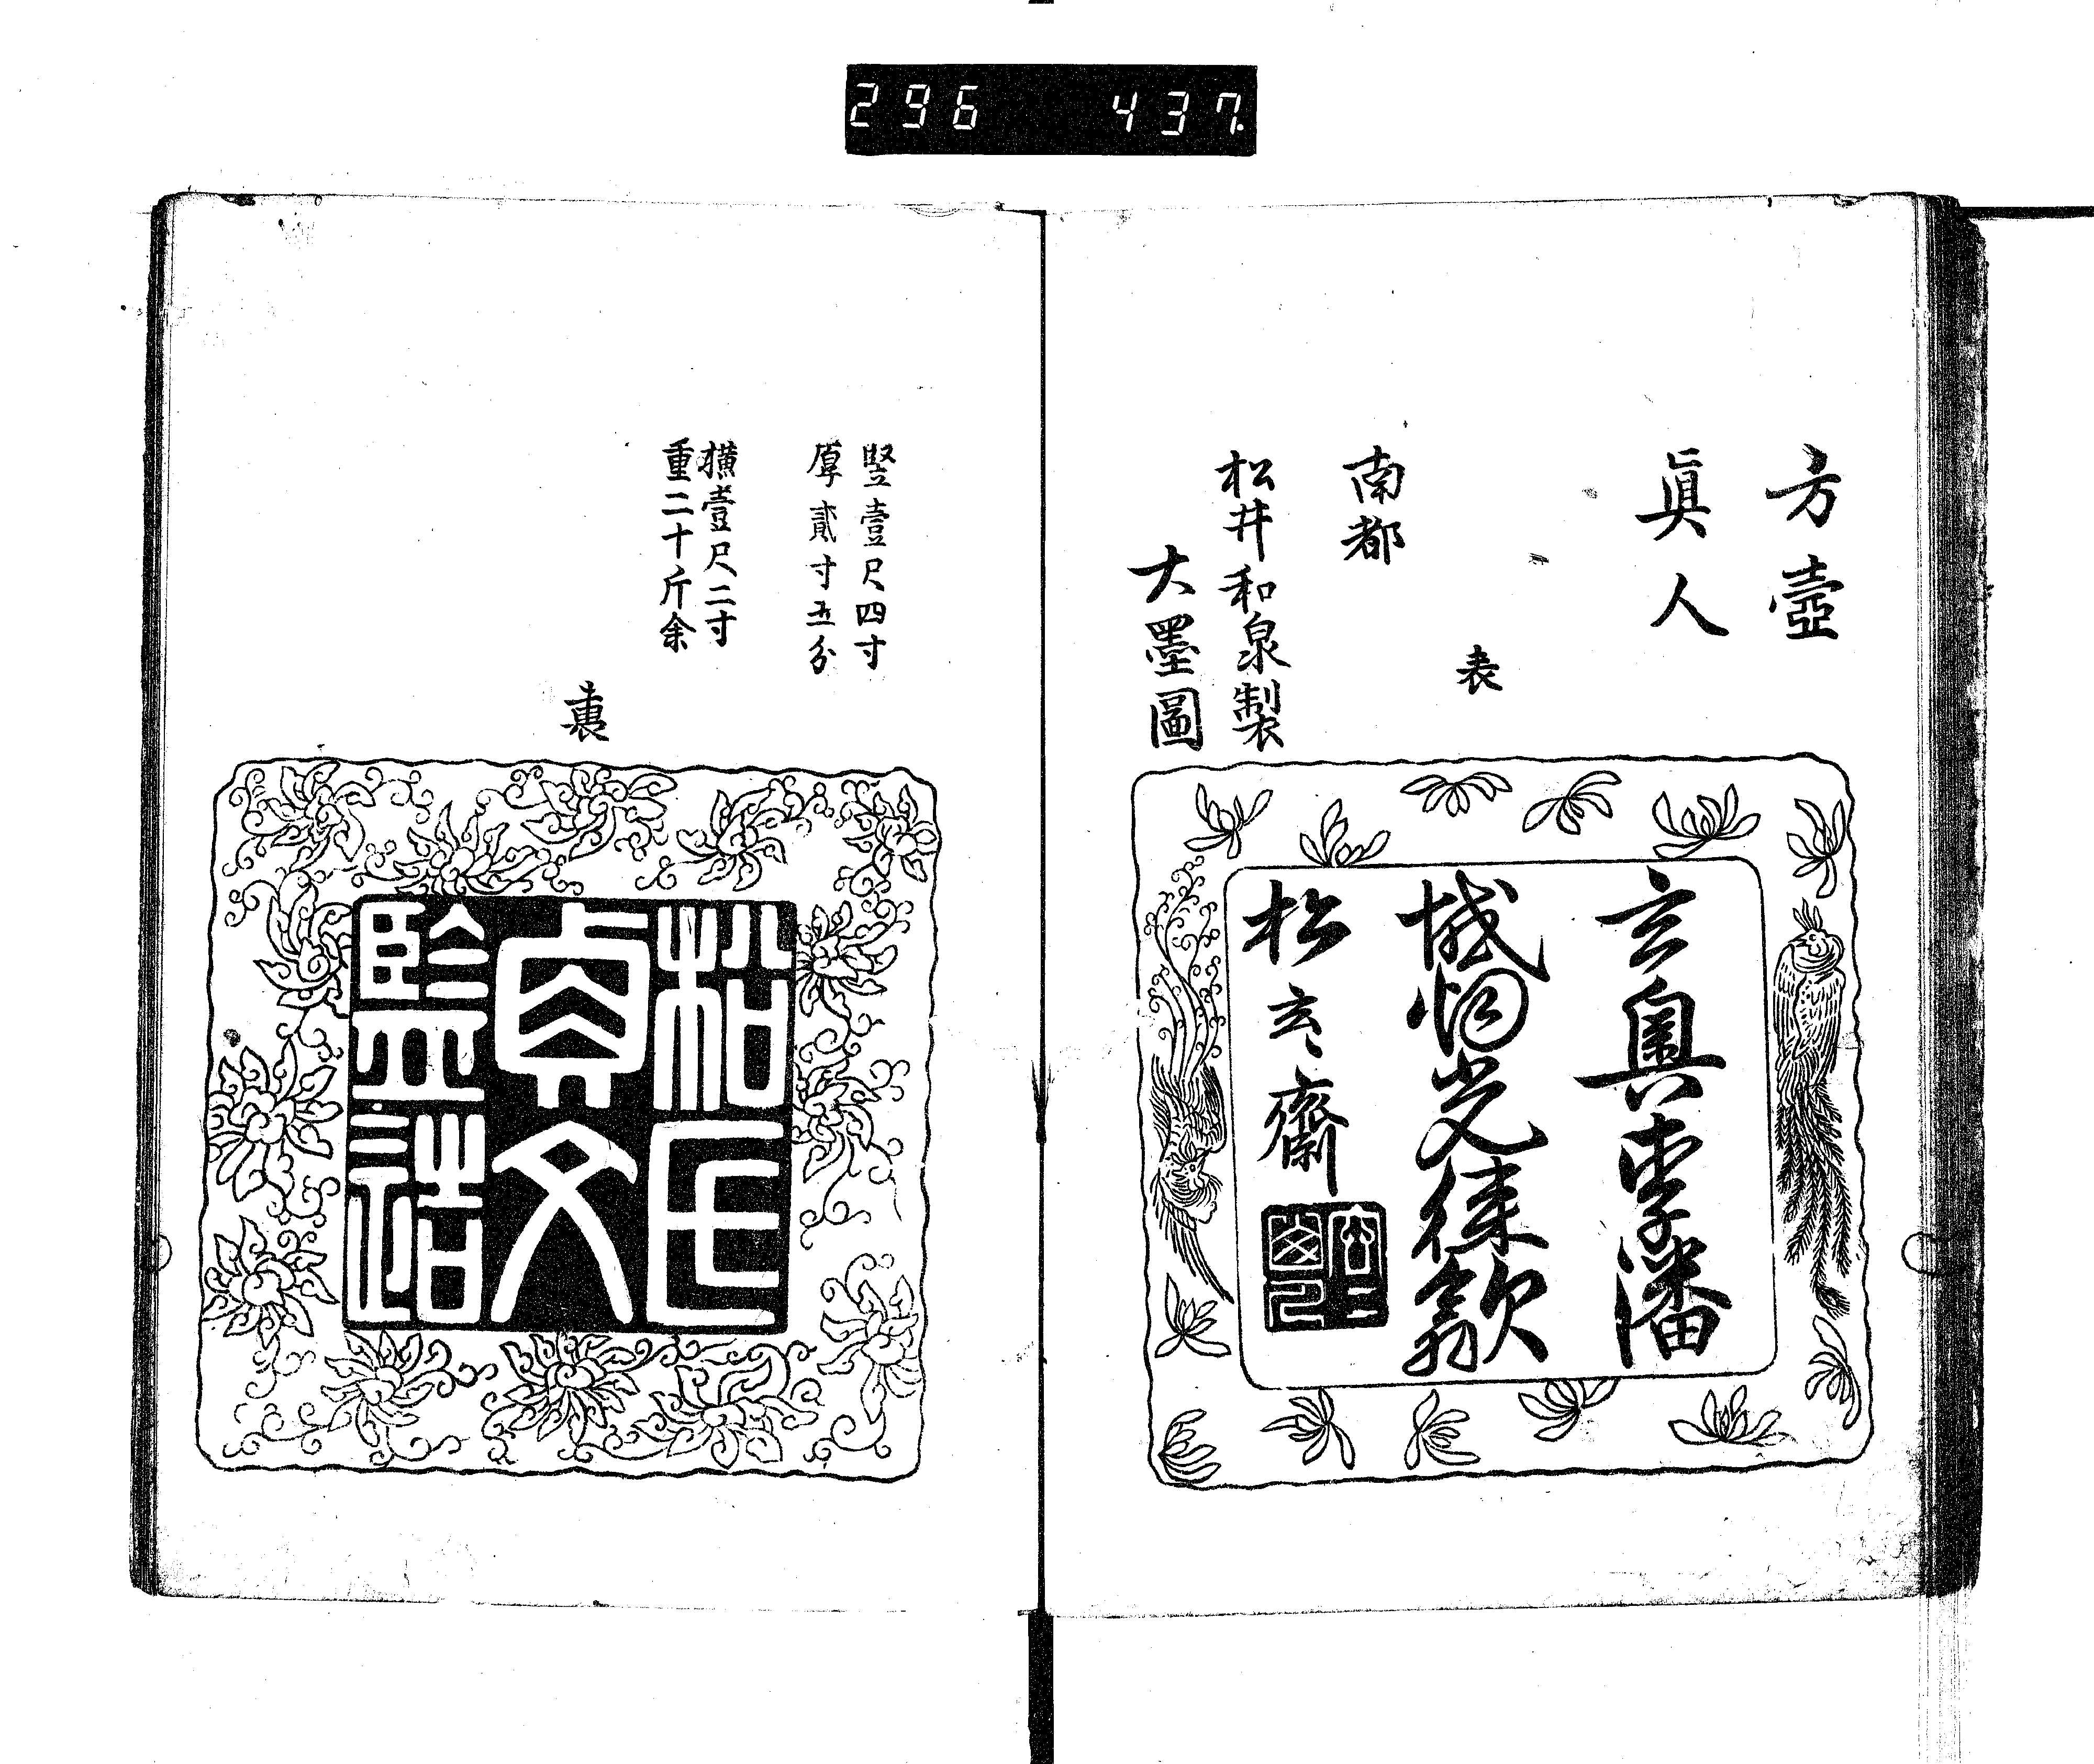 296 437
方壺
眞人
表
南都
松井和泉製
大墨圖
玄奥李潘
松玄々齋
竪壹尺四寸
厚貳寸五分
横壹尺二寸
重二十斤余
裏
松氏
貞文
監造